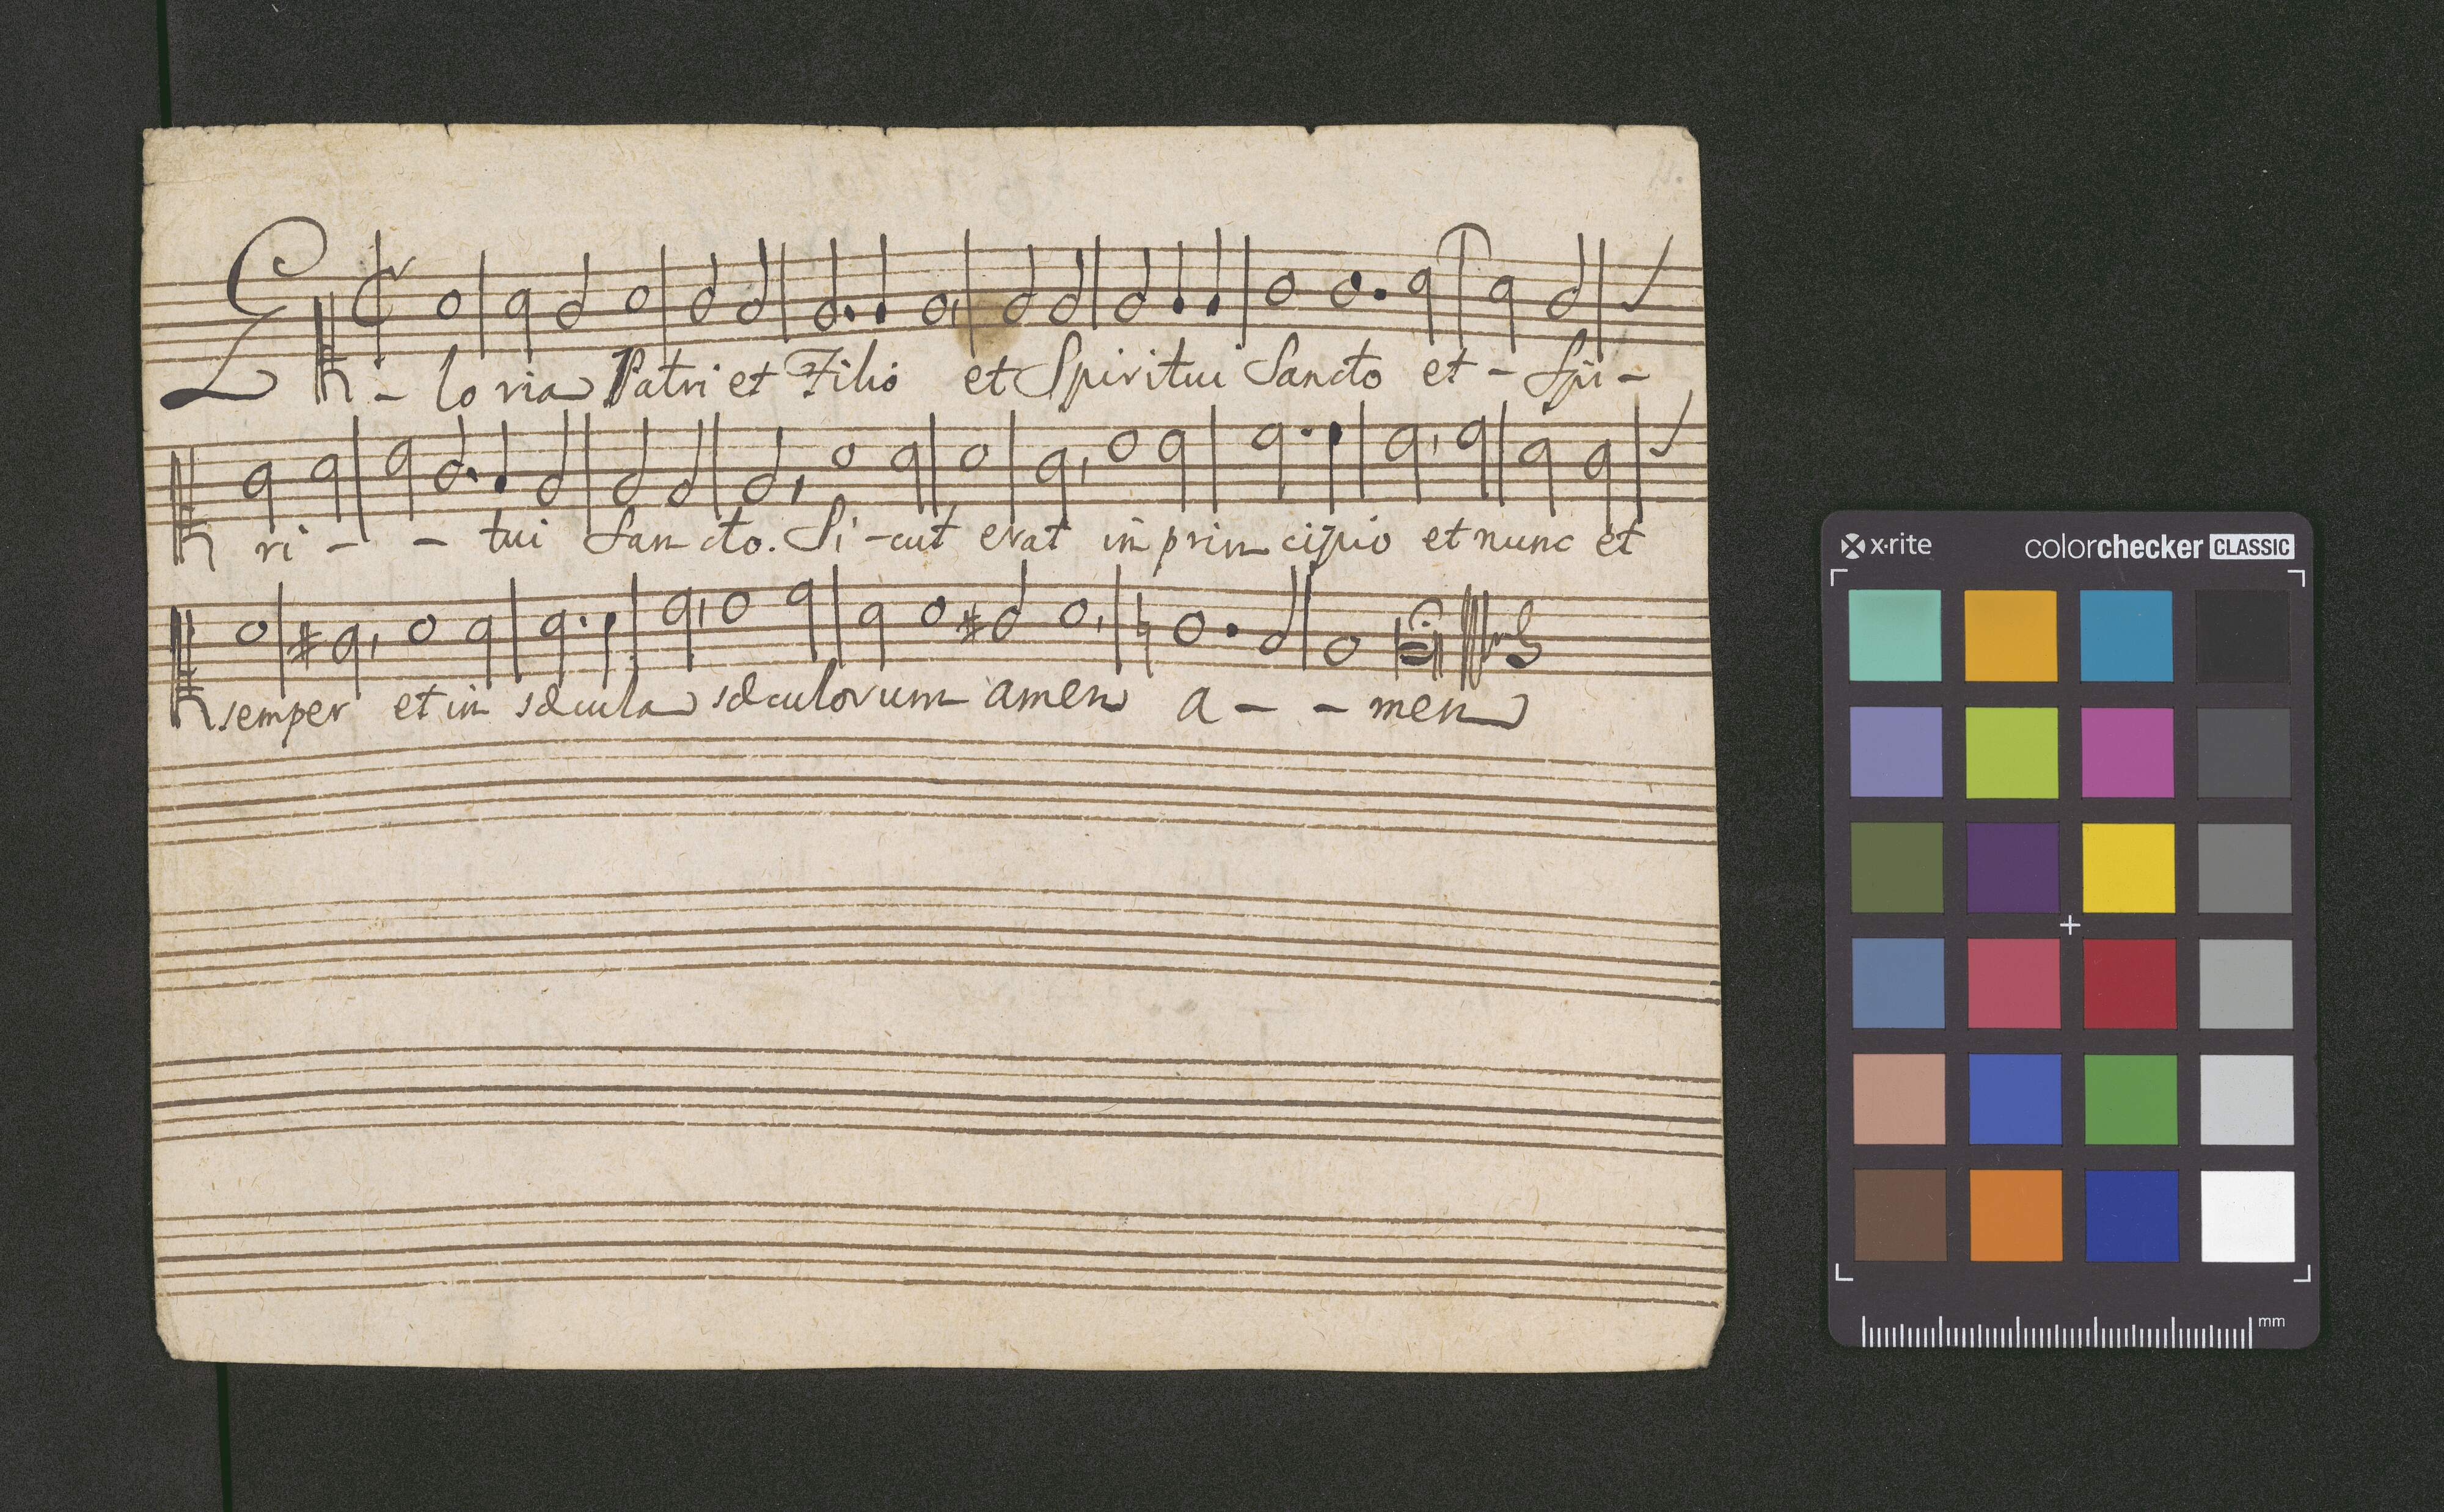 G - loria Patri et Filio et Spiritui Sancto et - Spi -
ri - - tui Sancto. Si - cut erat in principio et nunc et
semper et in sæcula sæculorum amen a - - men
x·rite colorchecker CLASSIC
mm